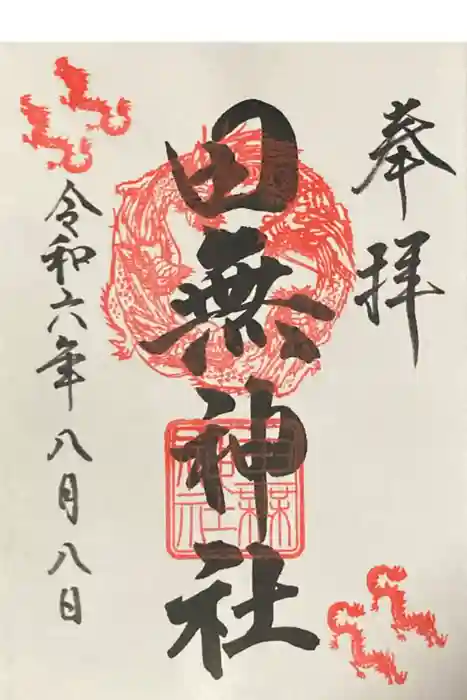 奉拝
田無神社
令和六年八月八日